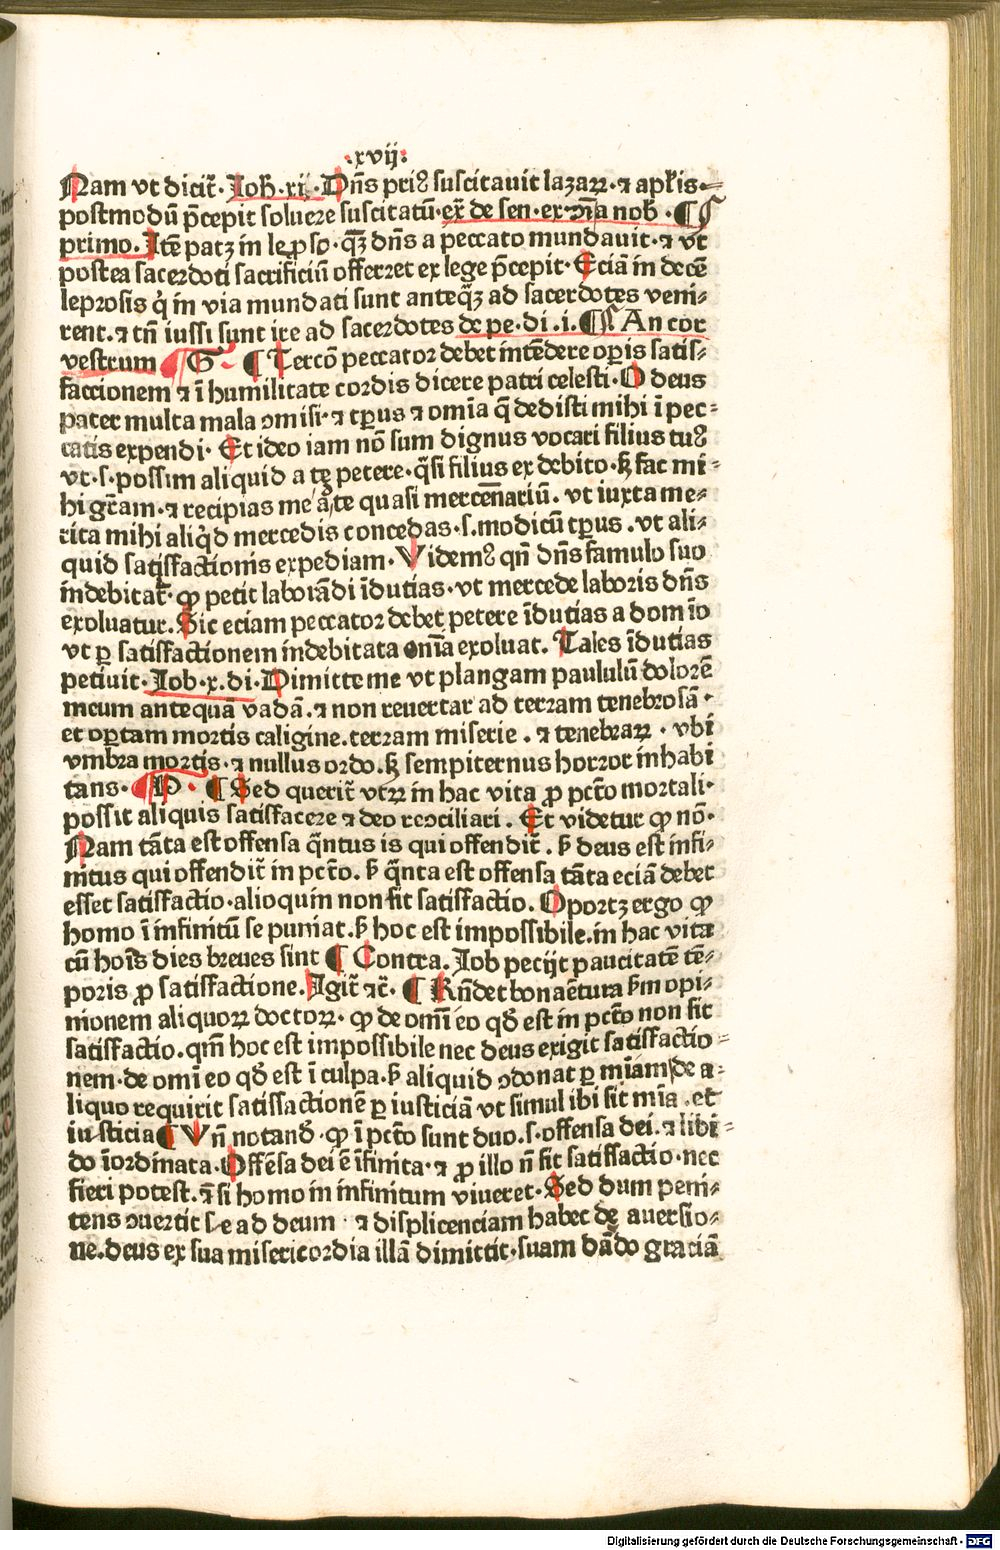 .xvij.
Nam vt dicit̃. Ioh̃.xi. Dn̄s priꝰ suscitauit lazaꝝ. ⁊ apl̃is.=
postmodū p̄cepit soluere suscitatū. ex̃ de sen. ex. nob̃. ¶
primo. Itē patꝫ in leproso. qꝫ dn̄s a peccato mundauit. ⁊ vt
postea sacerdoti sacrificiū offerret ex lege p̄cepit. Eciā in decē
leprosis q̇ in via mundati sunt anteq̄ꝫ ad sacerdotes veni⸗
rent. ⁊ tn̄ iussi sunt ire ad sacerdotes de pe. di. i. ¶ An cor
vestrum ¶ G ¶ Tercō peccator debet intēdere oꝑis satis⸗
faccionem ⁊ ī humilitate cordis dicere patri celesti. O deus
pater multa mala ꝯmisi. ⁊ tp̄us ⁊ omīa q̄ dedisti mihi ī pec⸗
catis expendi. Et ideo iam nō sum dignus vocari filius tuꝰ
vt. s. possim aliquid a te petere. q̄si filius ex debito. sꝫ fac mi⸗
hi gr̄am. ⁊ recipias me a te quasi mercēnariū. vt iuxta me⸗
rita mihi aliq̇d mercedis concedas. s. modicū tp̄us. vt ali⸗
quid satisfactionis expediam. Videmꝰ qn̄ dn̄s famulo suo
indebitat̃. ꝙ petit laborādi īdutias. vt mercede laboris dn̄s
exoluatur. Sic eciam peccator debet petere īdutias a domīo
vt ꝑ satisfactionem indebitata omīa exoluat. Tales īdutias
petiuit. Iob. x. di. Dimitte me vt plangam paululū dolorē
meum antequā vadā. ⁊ non reuertar ad terram tenebrosā.
et oꝑtam mortis caligine. terram miserie. ⁊ tenebraꝝ. vbi
vmbra mortis. ⁊ nullus ordo. sꝫ sempiternus horror inhabi
tans. ¶ H. ¶ Sed querit̃ vtꝝ in hac vita ꝓ pctō mortali.
possit aliquis satisfacere ⁊ deo recꝯciliari. Et videtur ꝙ nō.
Nam tāta est offensa q̄ntus is qui offendit̃. sꝫ deus est infi⸗
nitus qui offendit̃ in pctō. sꝫ q̄nta est offensa tāta eciā debet
esset satisfactio. alioquin non fit satisfactio. Oportꝫ ergo ꝙ
homo ī infinitū se puniat. sꝫ hoc est impossibile. in hac vita
cū hoīs dies breues sint ¶ Contra. Iob petijt paucitatē tē⸗
poris ꝓ satisfactione. Igit̃ ⁊c̃. ¶ Rn̄det bonaētura sm̄ opi⸗
nionem aliquoꝝ doctoꝝ. ꝙ de omī eo qd̄ est in pctō non fit
satisfactio. qm̄ hoc est impossibile nec deus exigit satisfactio⸗
nem. de omī eo qd̄ est ī culpa. sꝫ aliquid ꝯdonat ꝑ mīam de a⸗
liquo requirit satisfactionē ꝑ iusticiā vt simul ibi sit mīa. et
iusticia ¶ Vn̄ notand̄. ꝙ ī pctō sunt duo. s. offensa dei. ⁊ libi⸗
do īordinata. Offēsa dei ē īfinita. ⁊ ꝓ illo n̄ fit satisfactio. nec
fieri potest. q̄ si homo in infinitum viueret. Sed dum peni⸗
tens ꝯuertit se ad deum. ⁊ displicenciam habet de auersio⸗
ne. deus ex sua misericordia illā dimittit. suam dādo graciā
Digitalisierung gefördert durch die Deutsche Forschungsgemeinschaft - DFG